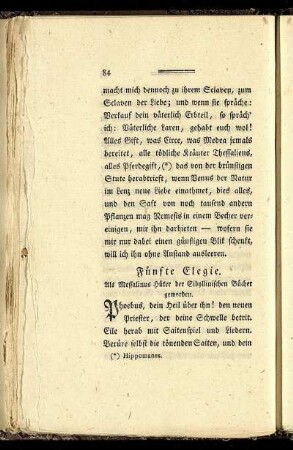 84
macht mich dennoch zu ihrem Sclaven, zum
Sclaven der Liebe; und wenn sie spräche:
Verkauf dein väterlich Erbteil, so spräch'
ich: Väterliche Laren, gehabt euch wol!
Alles Gift, was Circe, was Medea jemals
bereitet, alle tödliche Kräuter Thessaliens,
alles Pferdegift, (*) das von der brünstigen
Stute herabtrieft, wenn Venus der Natur
im Lenz neue Liebe einathmet, dies alles,
und den Saft von noch tausend andern
Pflanzen mag Nemesis in einem Becher ver-
einigen, mir ihn darbieten — wofern sie
mir nur dabei einen günstigen Blik schenkt,
will ich ihn ohne Anstand ausleeren.
Fünfte Elegie.
Als Messalinus Hüter der Sibyllinischen Bücher
geworden.
Phoebus, dein Heil über ihn! den neuen
Priester, der deine Schwelle betrit.
Eile herab mit Saitenspiel und Liedern.
Berüre selbst die tönenden Saiten, und dein
(*) Hippomanes.